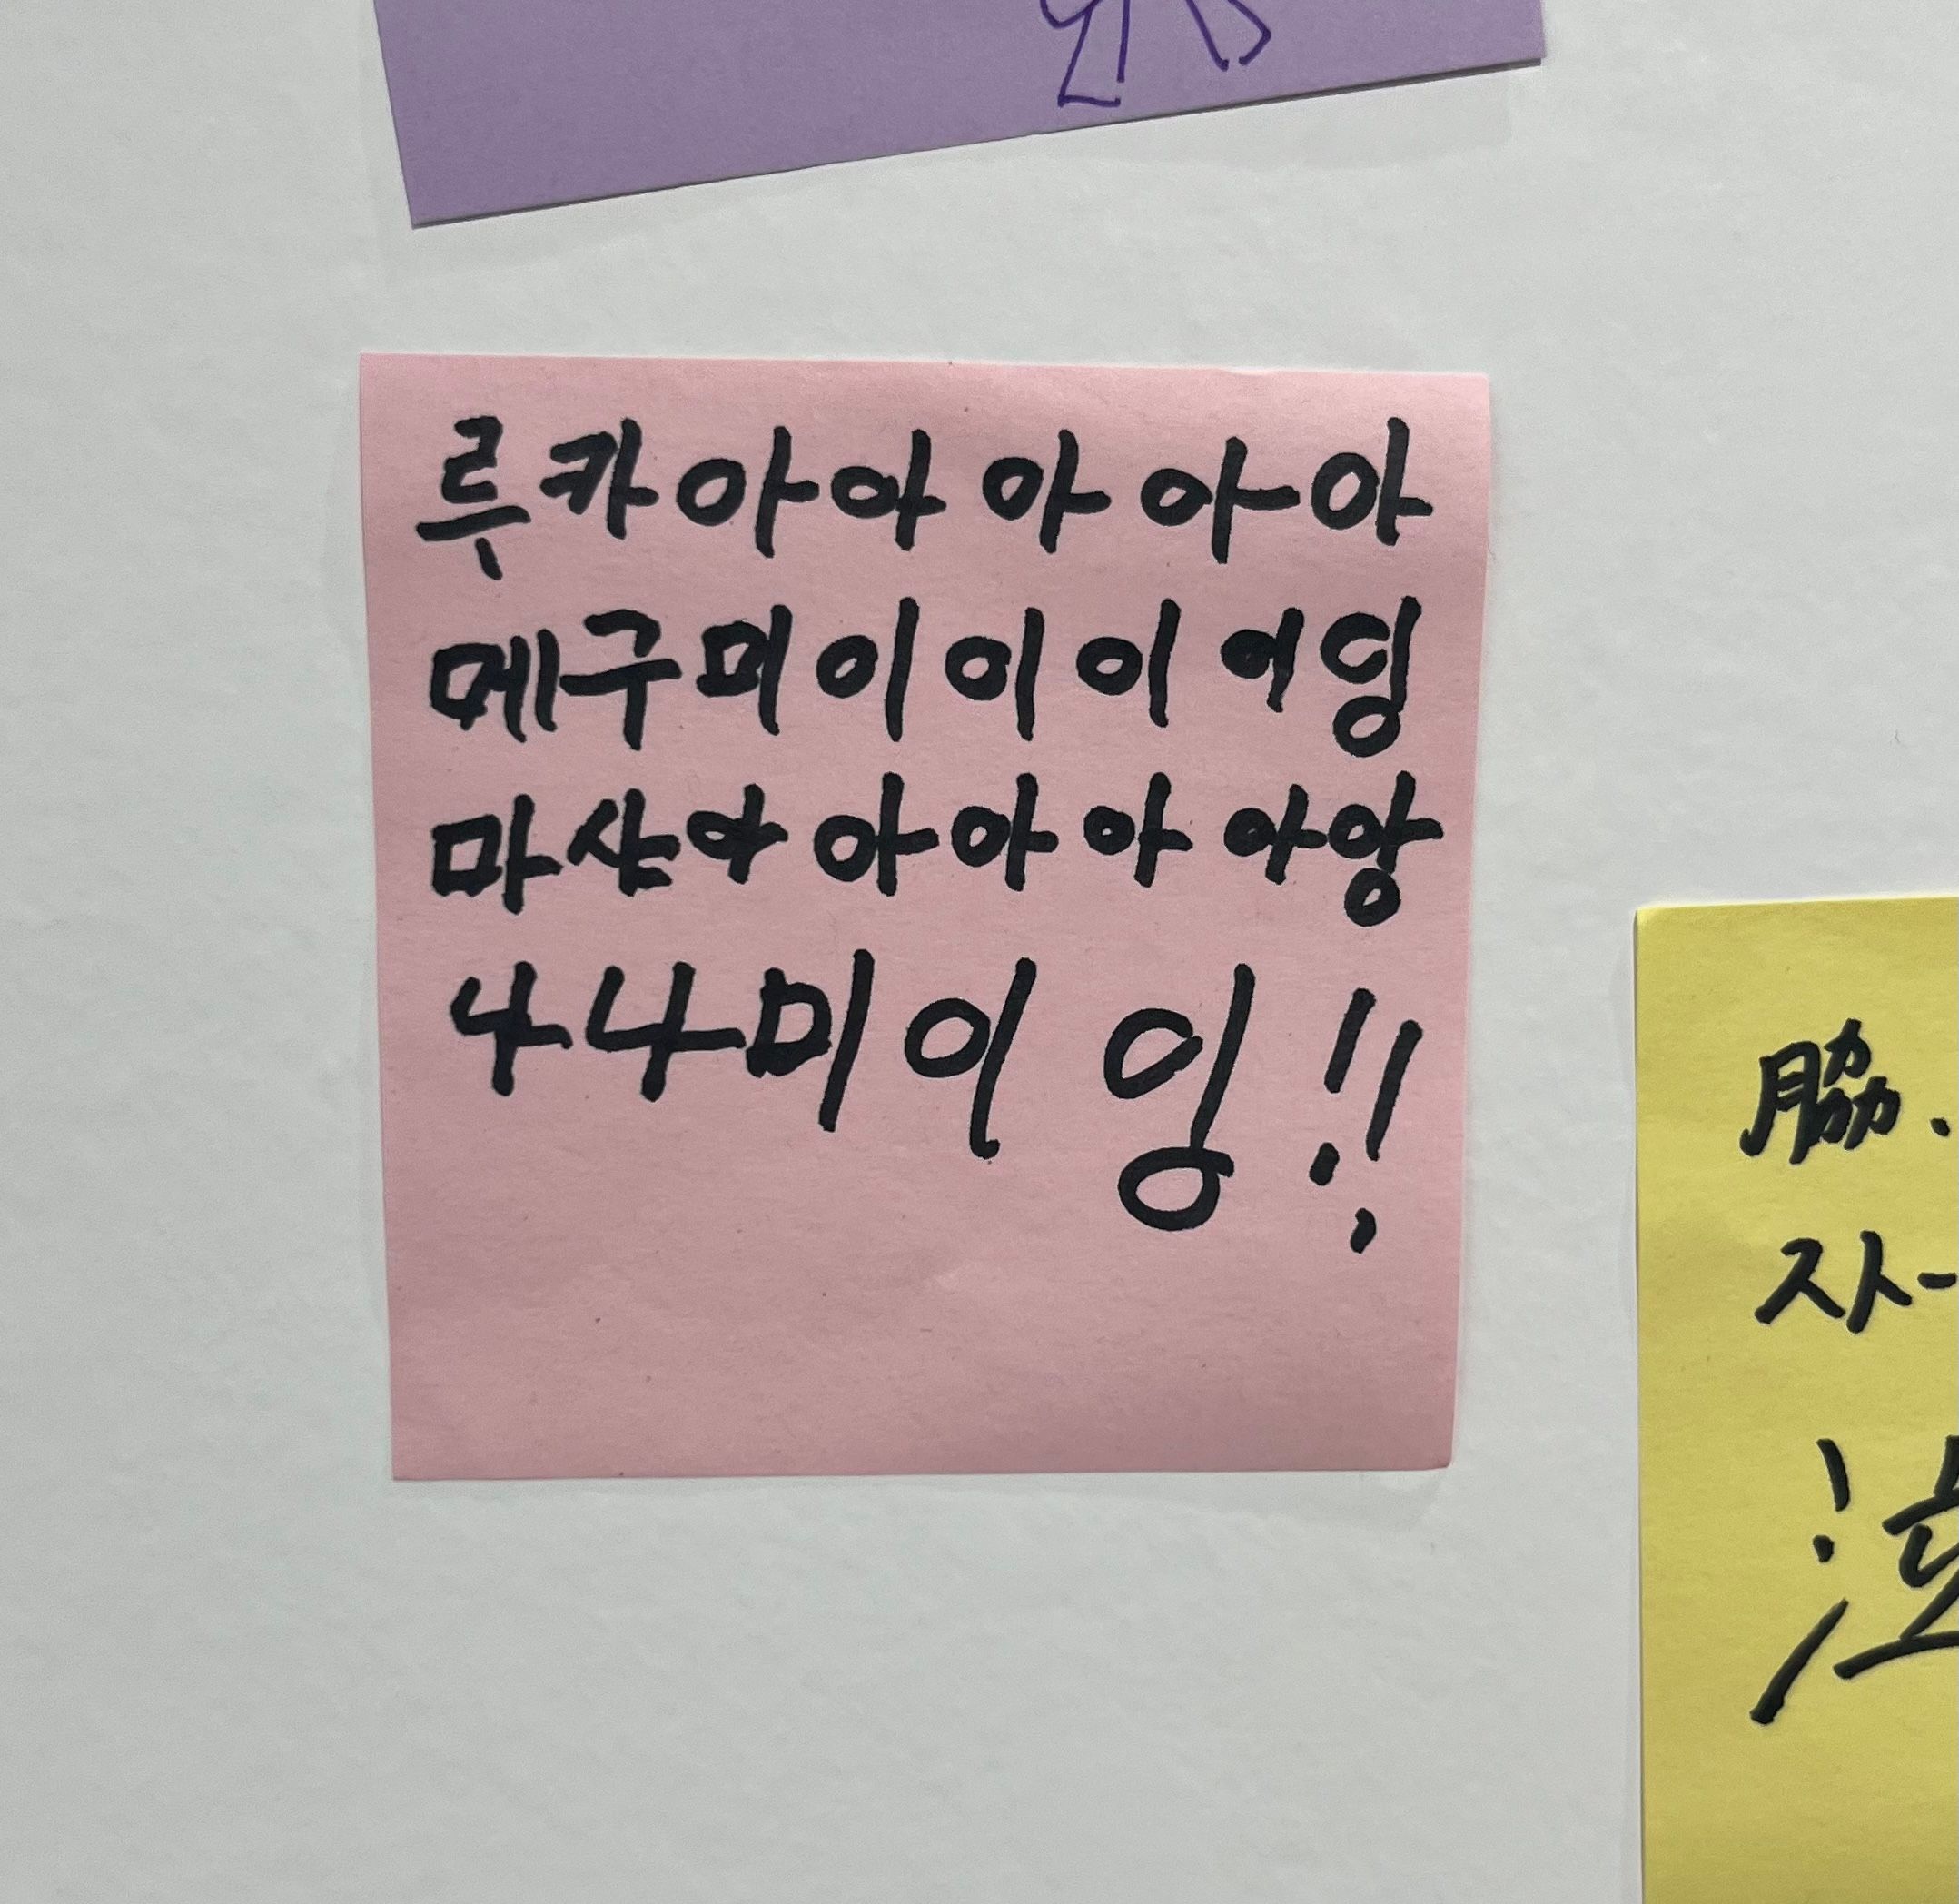 루카아아아아아
메구미이이이이잉
마산아아아아아앙
나나미이잉!!
脇.
スト-